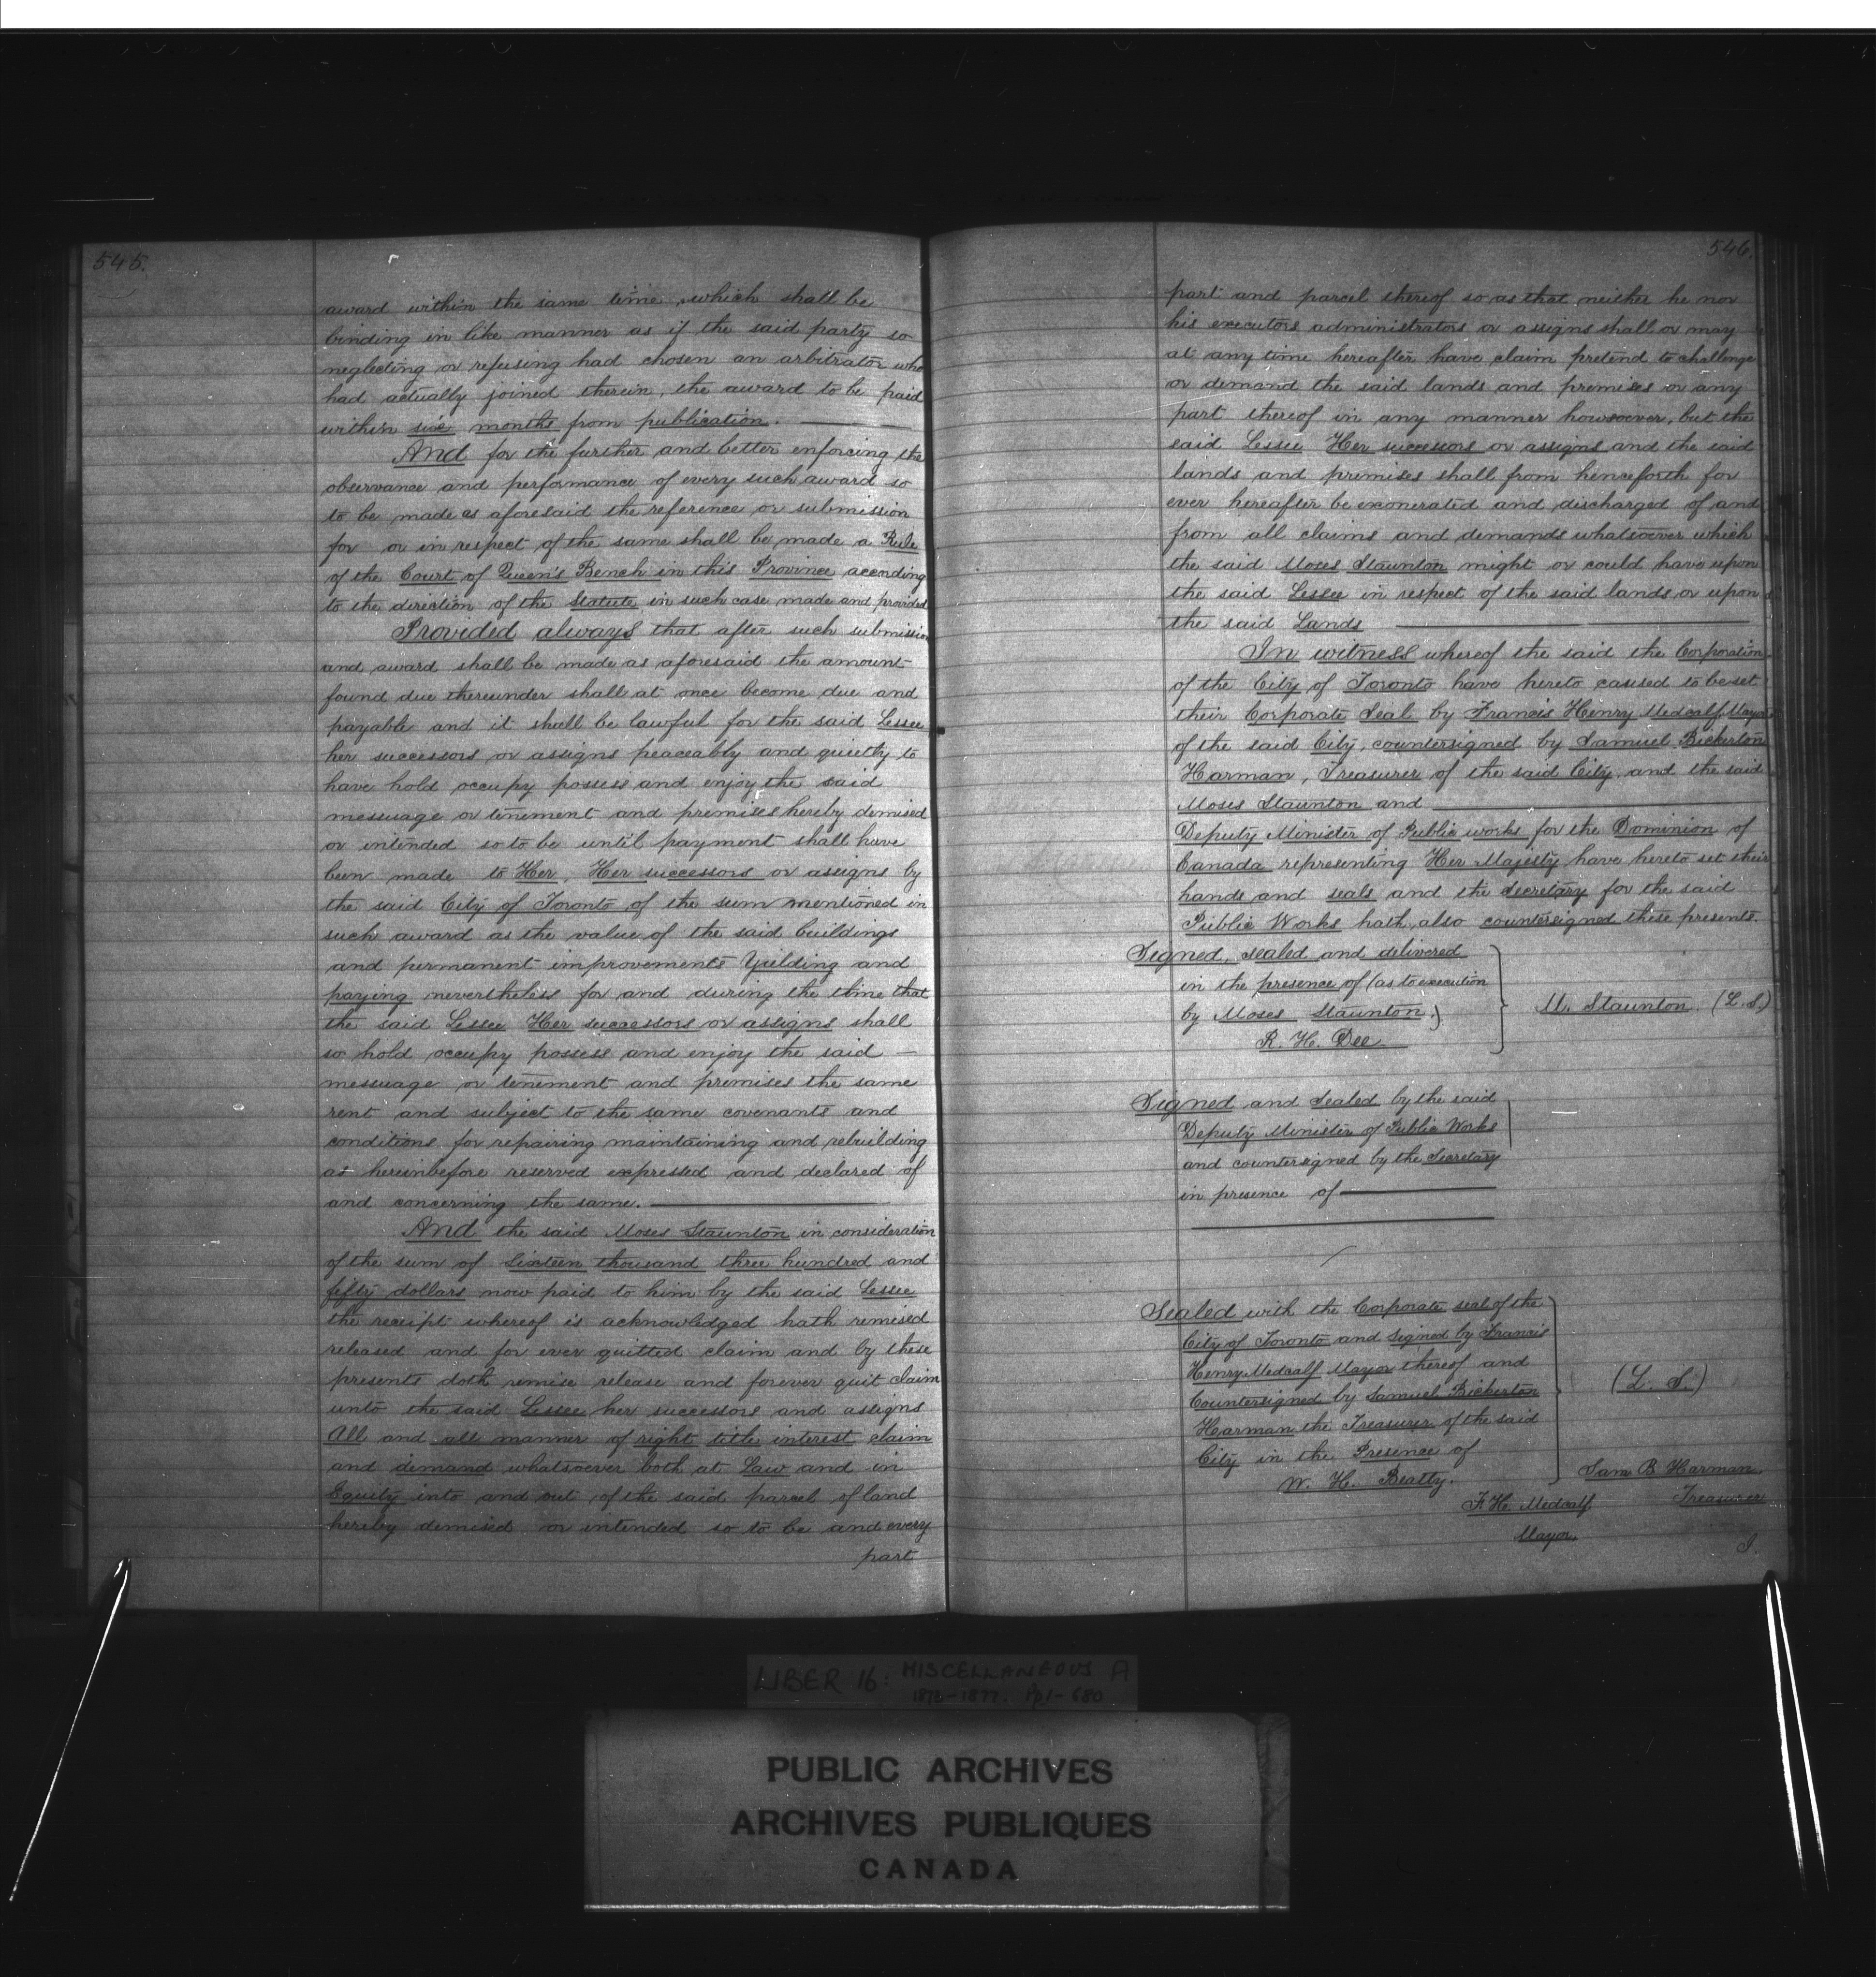 545.
award within the same time, which shall be
binding in like manner as if the said party so
neglecting or refusing had chosen an arbitrator who
had actually joined therein, the award to be paid
within six months from publication.
And for the further and better enforcing the
observance and performance of every such award so
to be made as aforesaid the reference or submission
for or in respect of the same shall be made a Rule
of the Court of Queen's Bench in this Province according
to the direction of the Statute in such case made and provided
Provided always that after such submission
and award shall be made as aforesaid the amount
found due thereunder shall at once become due and
payable and it shall be lawful for the said Lessee
her successors or assigns peaceably and quietly to
have hold occupy possess and enjoy the said
messuage or tenement and premises hereby demised
or intended so to be until payment shall have
been made to Her, Her successors or assigns by
the said City of Toronto of the sum mentioned in
such award as the value of the said buildings
and permanent improvements Yielding and
paying nevertheless for and during the time that
the said Lessee Her successors or assigns shall
so hold occupy possess and enjoy the said —
messuage or tenement and premises the same
rent and subject to the same covenants and
conditions for repairing maintaining and rebuilding
as hereinbefore reserved expressed and declared of
and concerning the same.
And the said Moses Staunton in consideration
of the sum of Sixteen thousand three hundred and
fifty dollars now paid to him by the said Lessee
the receipt whereof is acknowledged hath remised
released and for ever quitted claim and by these
presents doth remise release and forever quit claim
unto the said Lessee her successors and assigns
All and all manner of right title interest claim
and demand whatsoever both at Law and in
Equity into and out of the said parcel of land
hereby demised or intended so to be and every
part
546.
part and parcel thereof so as that neither he nor
his executors administrators or assigns shall or may
at any time hereafter have claim pretend to challenge
or demand the said lands and premises or any
part thereof in any manner howsoever, but the
said Lessee Her successors or assigns and the said
lands and premises shall from henceforth for
ever hereafter be exonerated and discharged of and
from all claims and demands whatsoever which
the said Moses Staunton might or could have upon
the said Lessee in respect of the said lands or upon
the said Lands
In witness whereof the said the Corporation
of the City of Toronto have hereto caused to be set
their Corporate Seal by Francis Henry Medcalf, Mayor
of the said City, countersigned by Samuel Bickerton
Harman, Treasurer of the said City, and the said
Moses Staunton and
Deputy Minister of Public works for the Dominion of
Canada representing Her Majesty have hereto set their
hands and seals and the Secretary for the said
Public Works hath also countersigned these presents.
Signed, sealed and delivered
in the presence of (as to execution
by Moses Staunton.)
R. H. Dee
M. Staunton. (L.S.)
Signed and Sealed by the said
Deputy Minister of Public Works
and countersigned by the Secretary
in presence of
Sealed with the Corporate seal of the
City of Toronto and signed by Francis
Henry Medcalf Mayor thereof and
Countersigned by Samuel Bickerton
Harman the Treasurer of the said
City in the Presence of
W. H. Beatty.
(L. S.)
Sam B Harman
Treasurer
F. H. Medcalf
Mayor
I.
LIBER 16: MISCELLANEOUS A
1876-1877. Pp1-680
PUBLIC ARCHIVES
ARCHIVES PUBLIQUES
CANADA